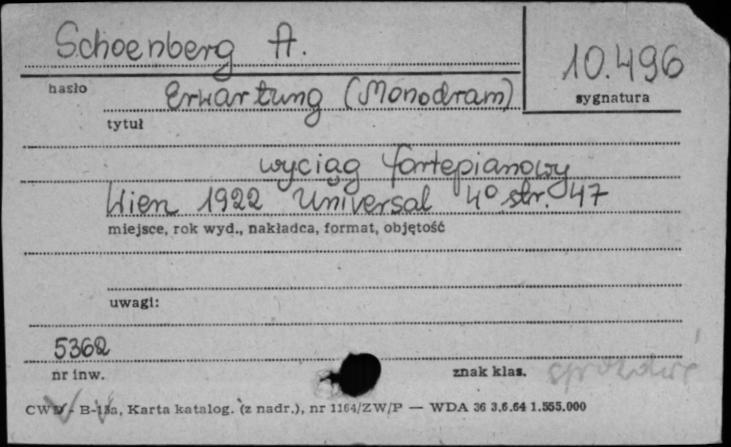 Schoenberg A.
10.496
hasło
sygnatura
Erwartung (Monodram)
tytuł
wyciąg fortepianowy
Wien 1922 Universal 4° str. 47
miejsce, rok wyd., nakładca, format, objętość
uwagi:
5362
nr inw.
znak klas.
sprawdzić
CWD - B-13a, Karta katalog. (z nadr.), nr 1164/ZW/P — WDA 36 3.6.64 1.555.000